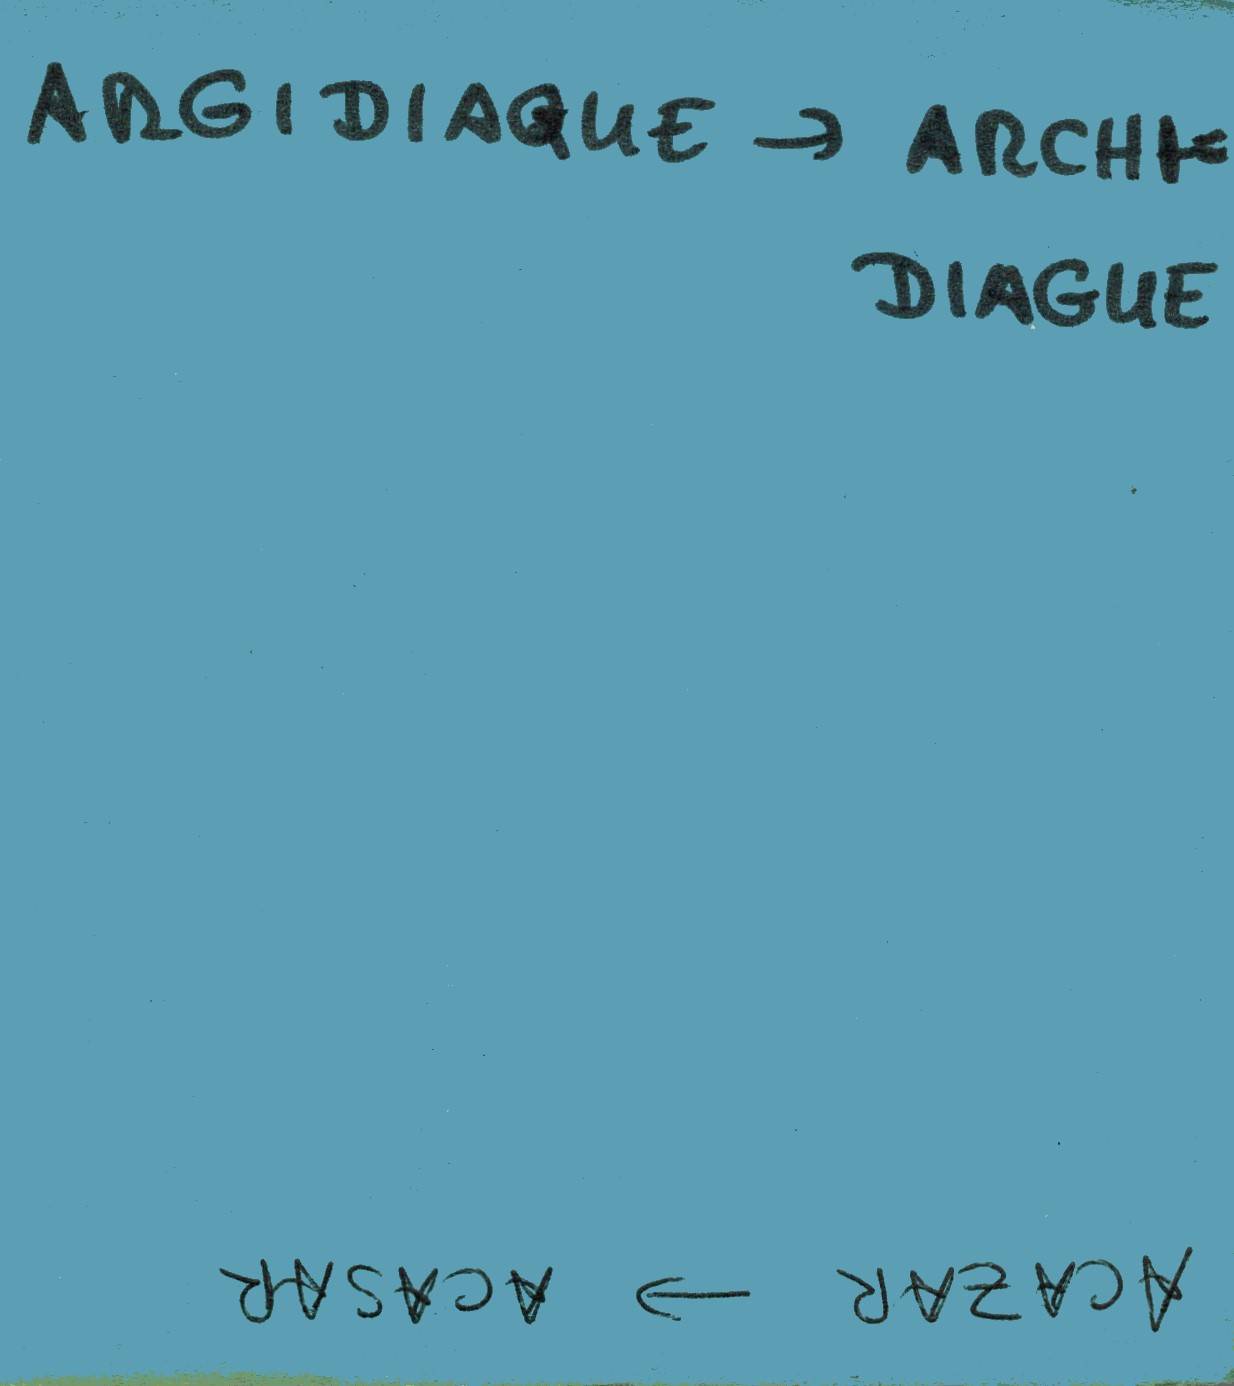 ARGIDIAQUE → ARCHI=
DIAGUE
ACAZAR → ACASAR